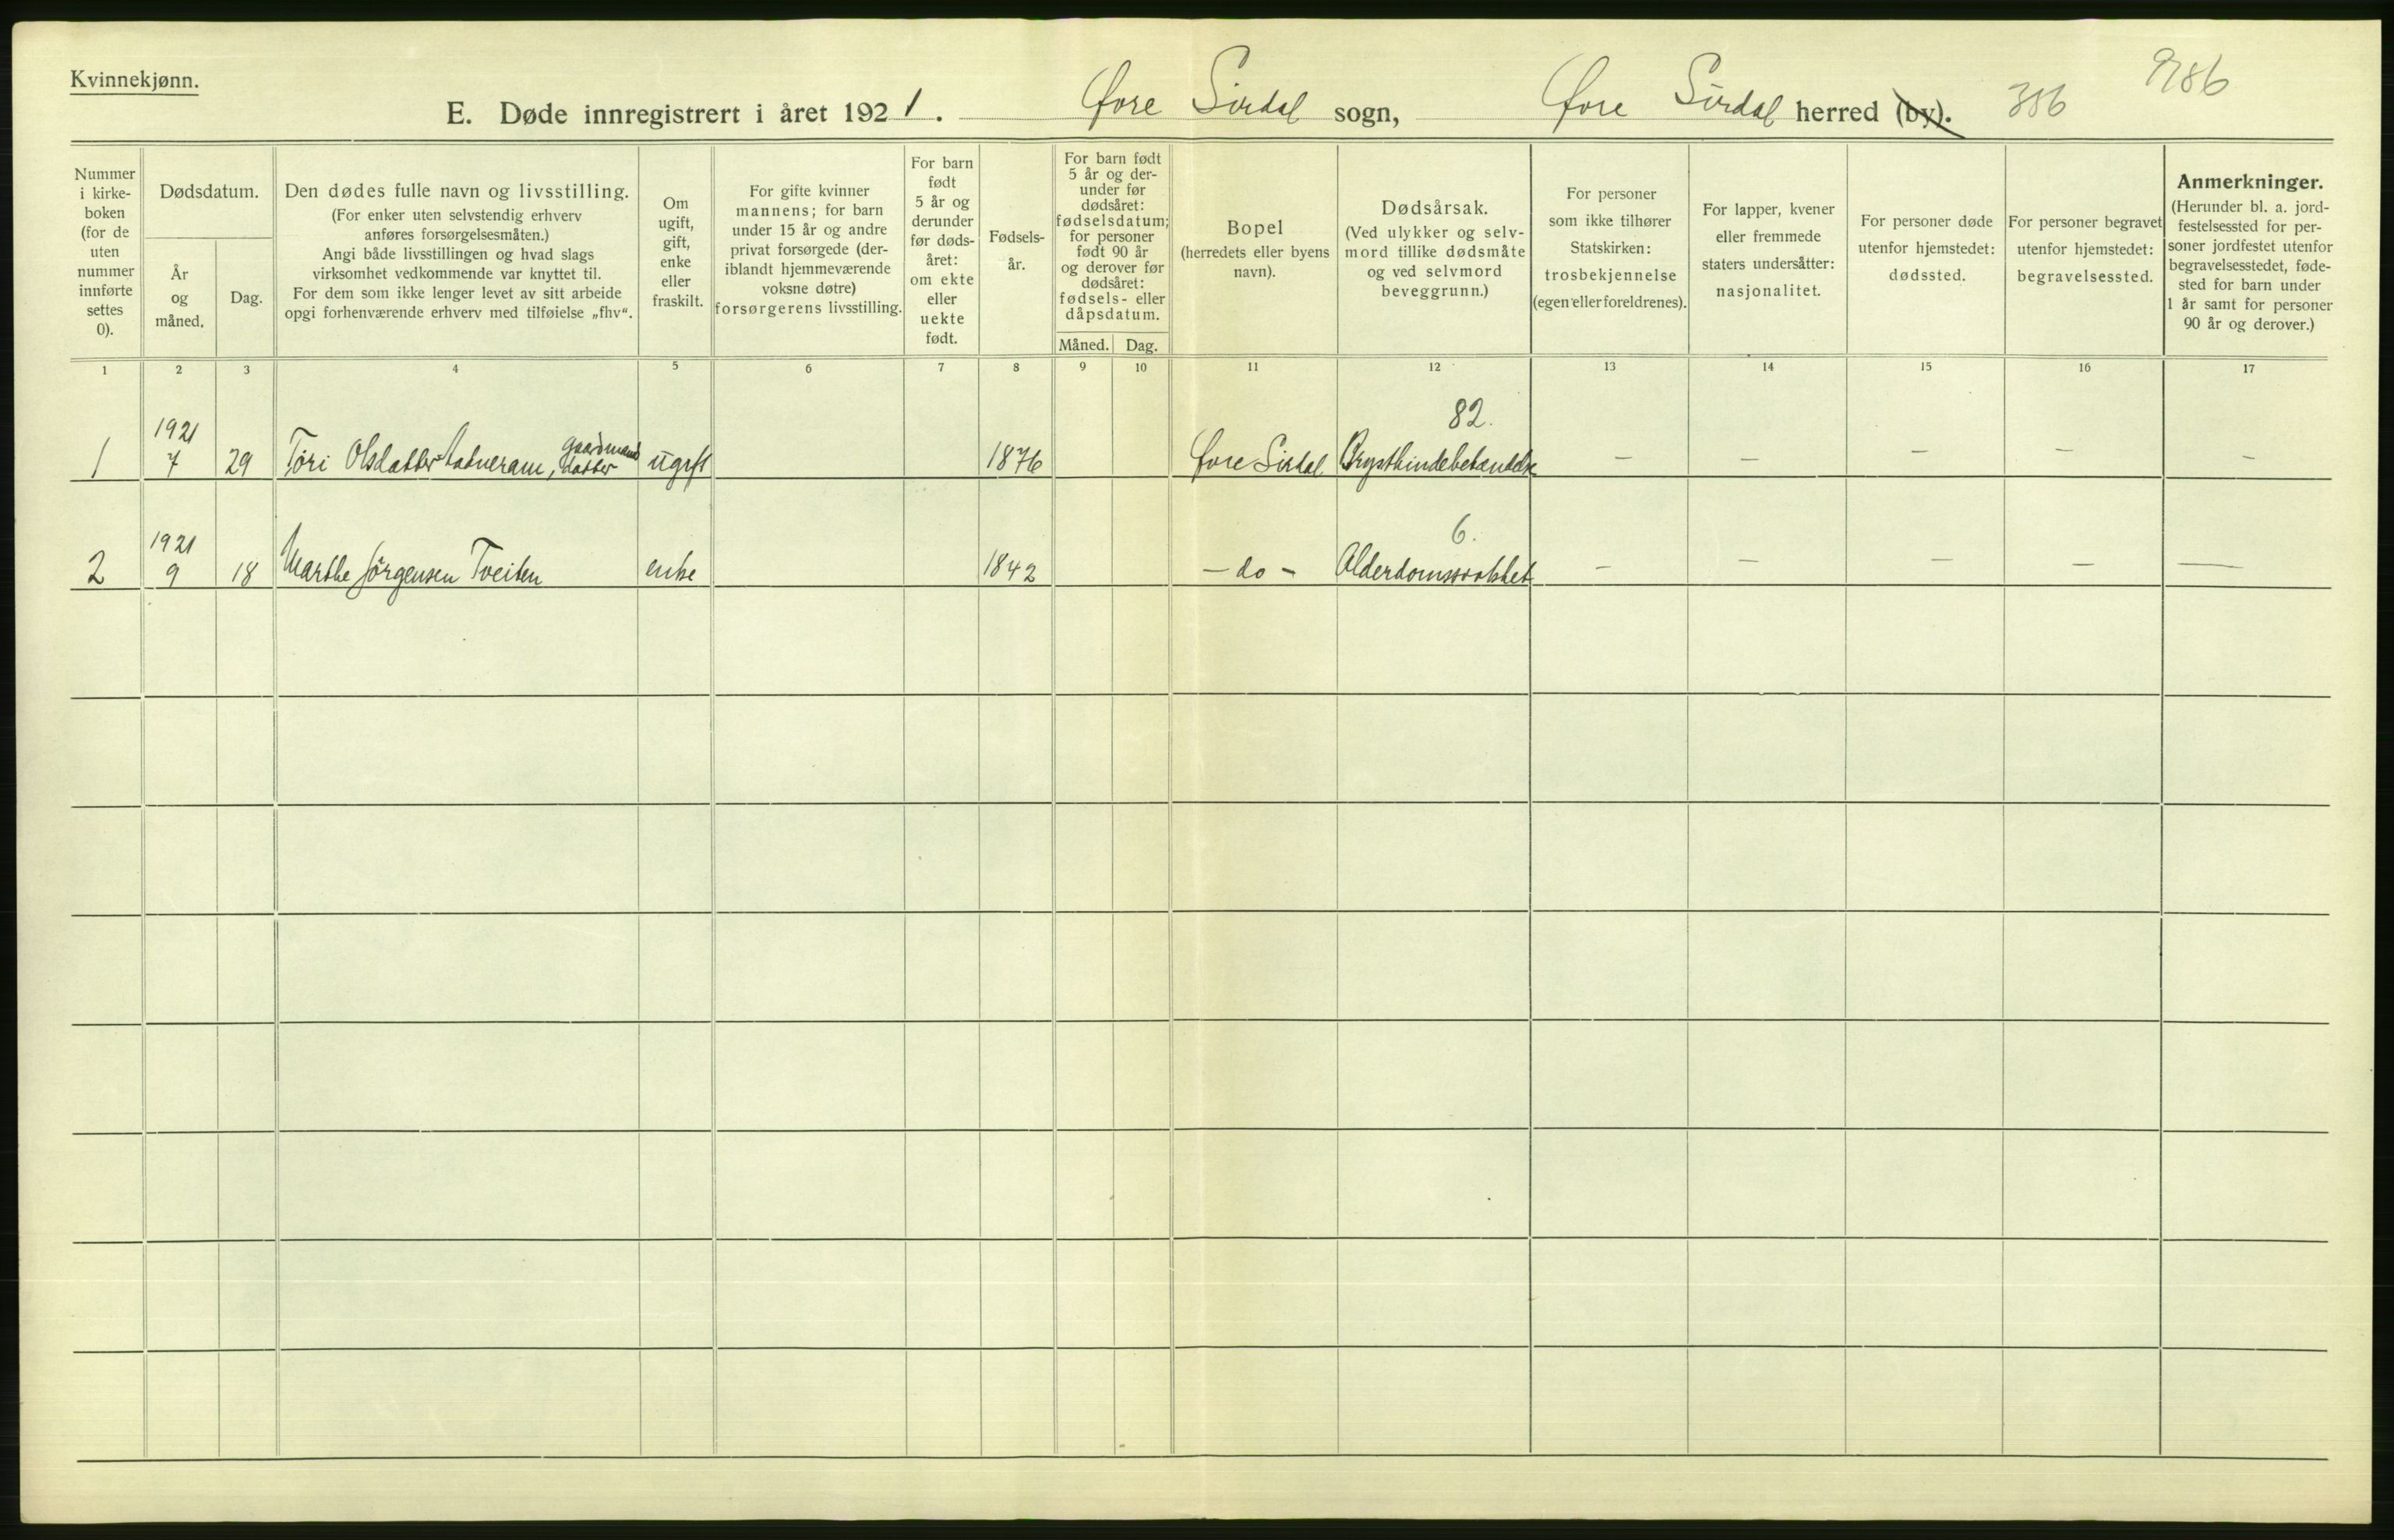 Kvinnekjønn.
9786
E. Døde innregistrert i året 1921. Øvre Sirdal sogn, Øvre Sirdal herred (by). 386
Nummer i kirke- boken (for de uten nummer innførte settes 0).
Dødsdatum.
År og måned.
Dag.
Den dødes fulle navn og livsstilling.
(For enker uten selvstendig erhverv
anføres forsørgelsesmåten.)
Angi både livsstillingen og hvad slags
virksomhet vedkommende var knyttet til.
For dem som ikke lenger levet av sitt arbeide
opgi forhenværende erhverv med tilføielse „fhv“.
Om ugift, gift, enke eller fraskilt.
For gifte kvinner
mannens; for barn
under 15 år og andre
privat forsørgede (der-
iblandt hjemmeværende
voksne døtre)
forsørgerens livsstilling.
For barn
født
5 år og
derunder
før døds-
året:
om ekte
eller
uekte
født.
Fødsels-
år.
For barn født
5 år og der-
under før
dødsåret:
fødselsdatum;
for personer
født 90 år
og derover før
dødsåret:
fødsels- eller
dåpsdatum.
Måned.
Dag.
Bopel
(herredets eller byens
navn).
Dødsårsak.
(Ved ulykker og selv-
mord tillike dødsmåte
og ved selvmord
beveggrunn.)
For personer
som ikke tilhører
Statskirken:
trosbekjennelse
(egen eller foreldrenes).
For lapper, kvener
eller fremmede
staters undersåtter:
nasjonalitet.
For personer døde
utenfor hjemstedet:
dødssted.
For personer begravet
utenfor hjemstedet:
begravelsessted.
Anmerkninger.
(Herunder bl. a. jord-
festelsessted for per-
soner jordfestet utenfor
begravelsesstedet, føde-
sted for barn under
1 år samt for personer
90 år og derover.)
1 2 3 4 5 6 7 8 9 10 11 12 13 14 15 16 17
1921 82.
1 7 29 Tøri Olsdatter, gaardmands datter ugift 1876 Øvre Sirdal Brysthindebetændelse — — — — —
1921 6.
2 9 18 Marthe Jørgensen Tveiten enke 1842 — do — Alderdomssvakhet — — — — —